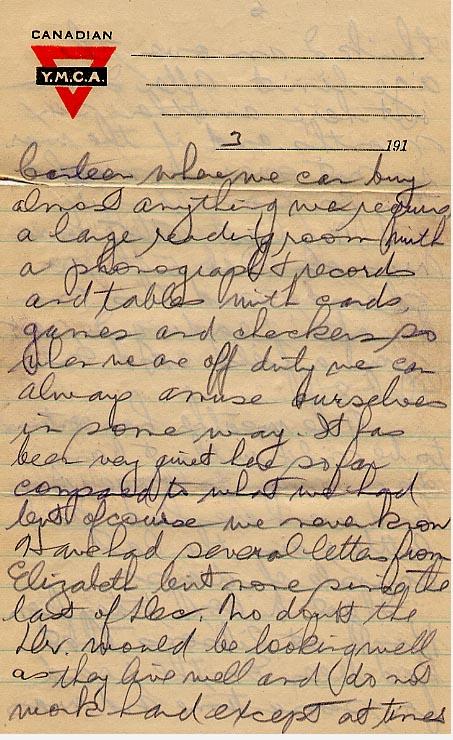 CANADIAN
Y.M.C.A.
3 191
Canteen where we can buy
almost anything we require
a large reading room with
a phonograph & records
and tables with cards,
games and checkers so
when we are off duty we can
always amuse ourselves
in some way. It has
been very quiet here so far
compared to what we had
but of course we never know
Have had several letters from
Elizabeth but none since the
last of Dec. No doubt the
Dr. would be looking well
as they live well and do not
work hard except at times